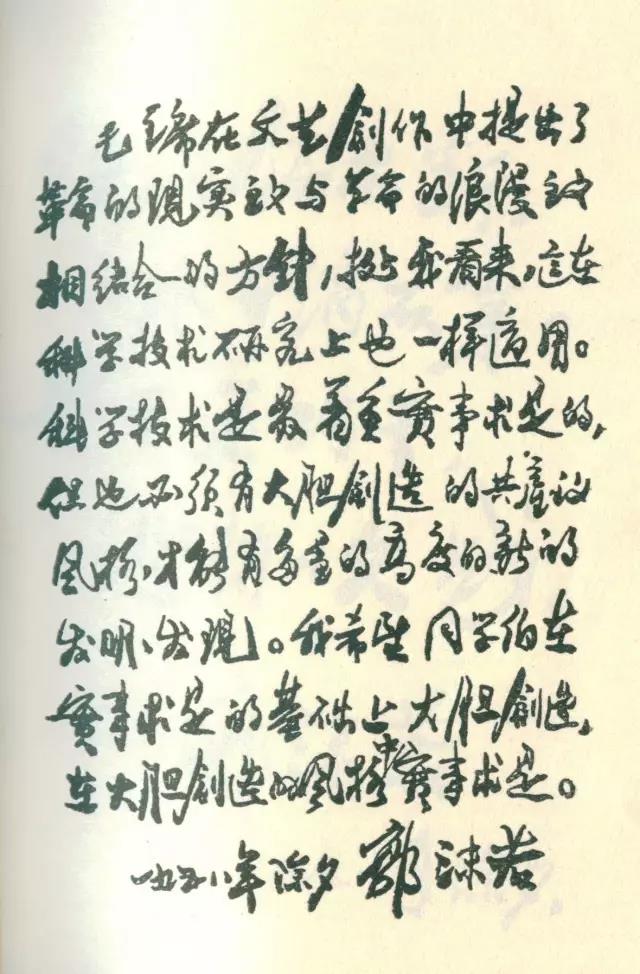 毛主席在文艺创作中提出了
革命的现实主义与革命的浪漫主义
相结合的方针，据我看来，这在
科学技术研究上也一样适用。
科学技术是最着重实事求是的，
但也必须有大胆创造的共产主义
风格，才能有多量的高度的新的
发明、发现。我希望同学们在
实事求是的基础上大胆创造，
在大胆创造的风格中实事求是。
一九五八年除夕 郭沫若